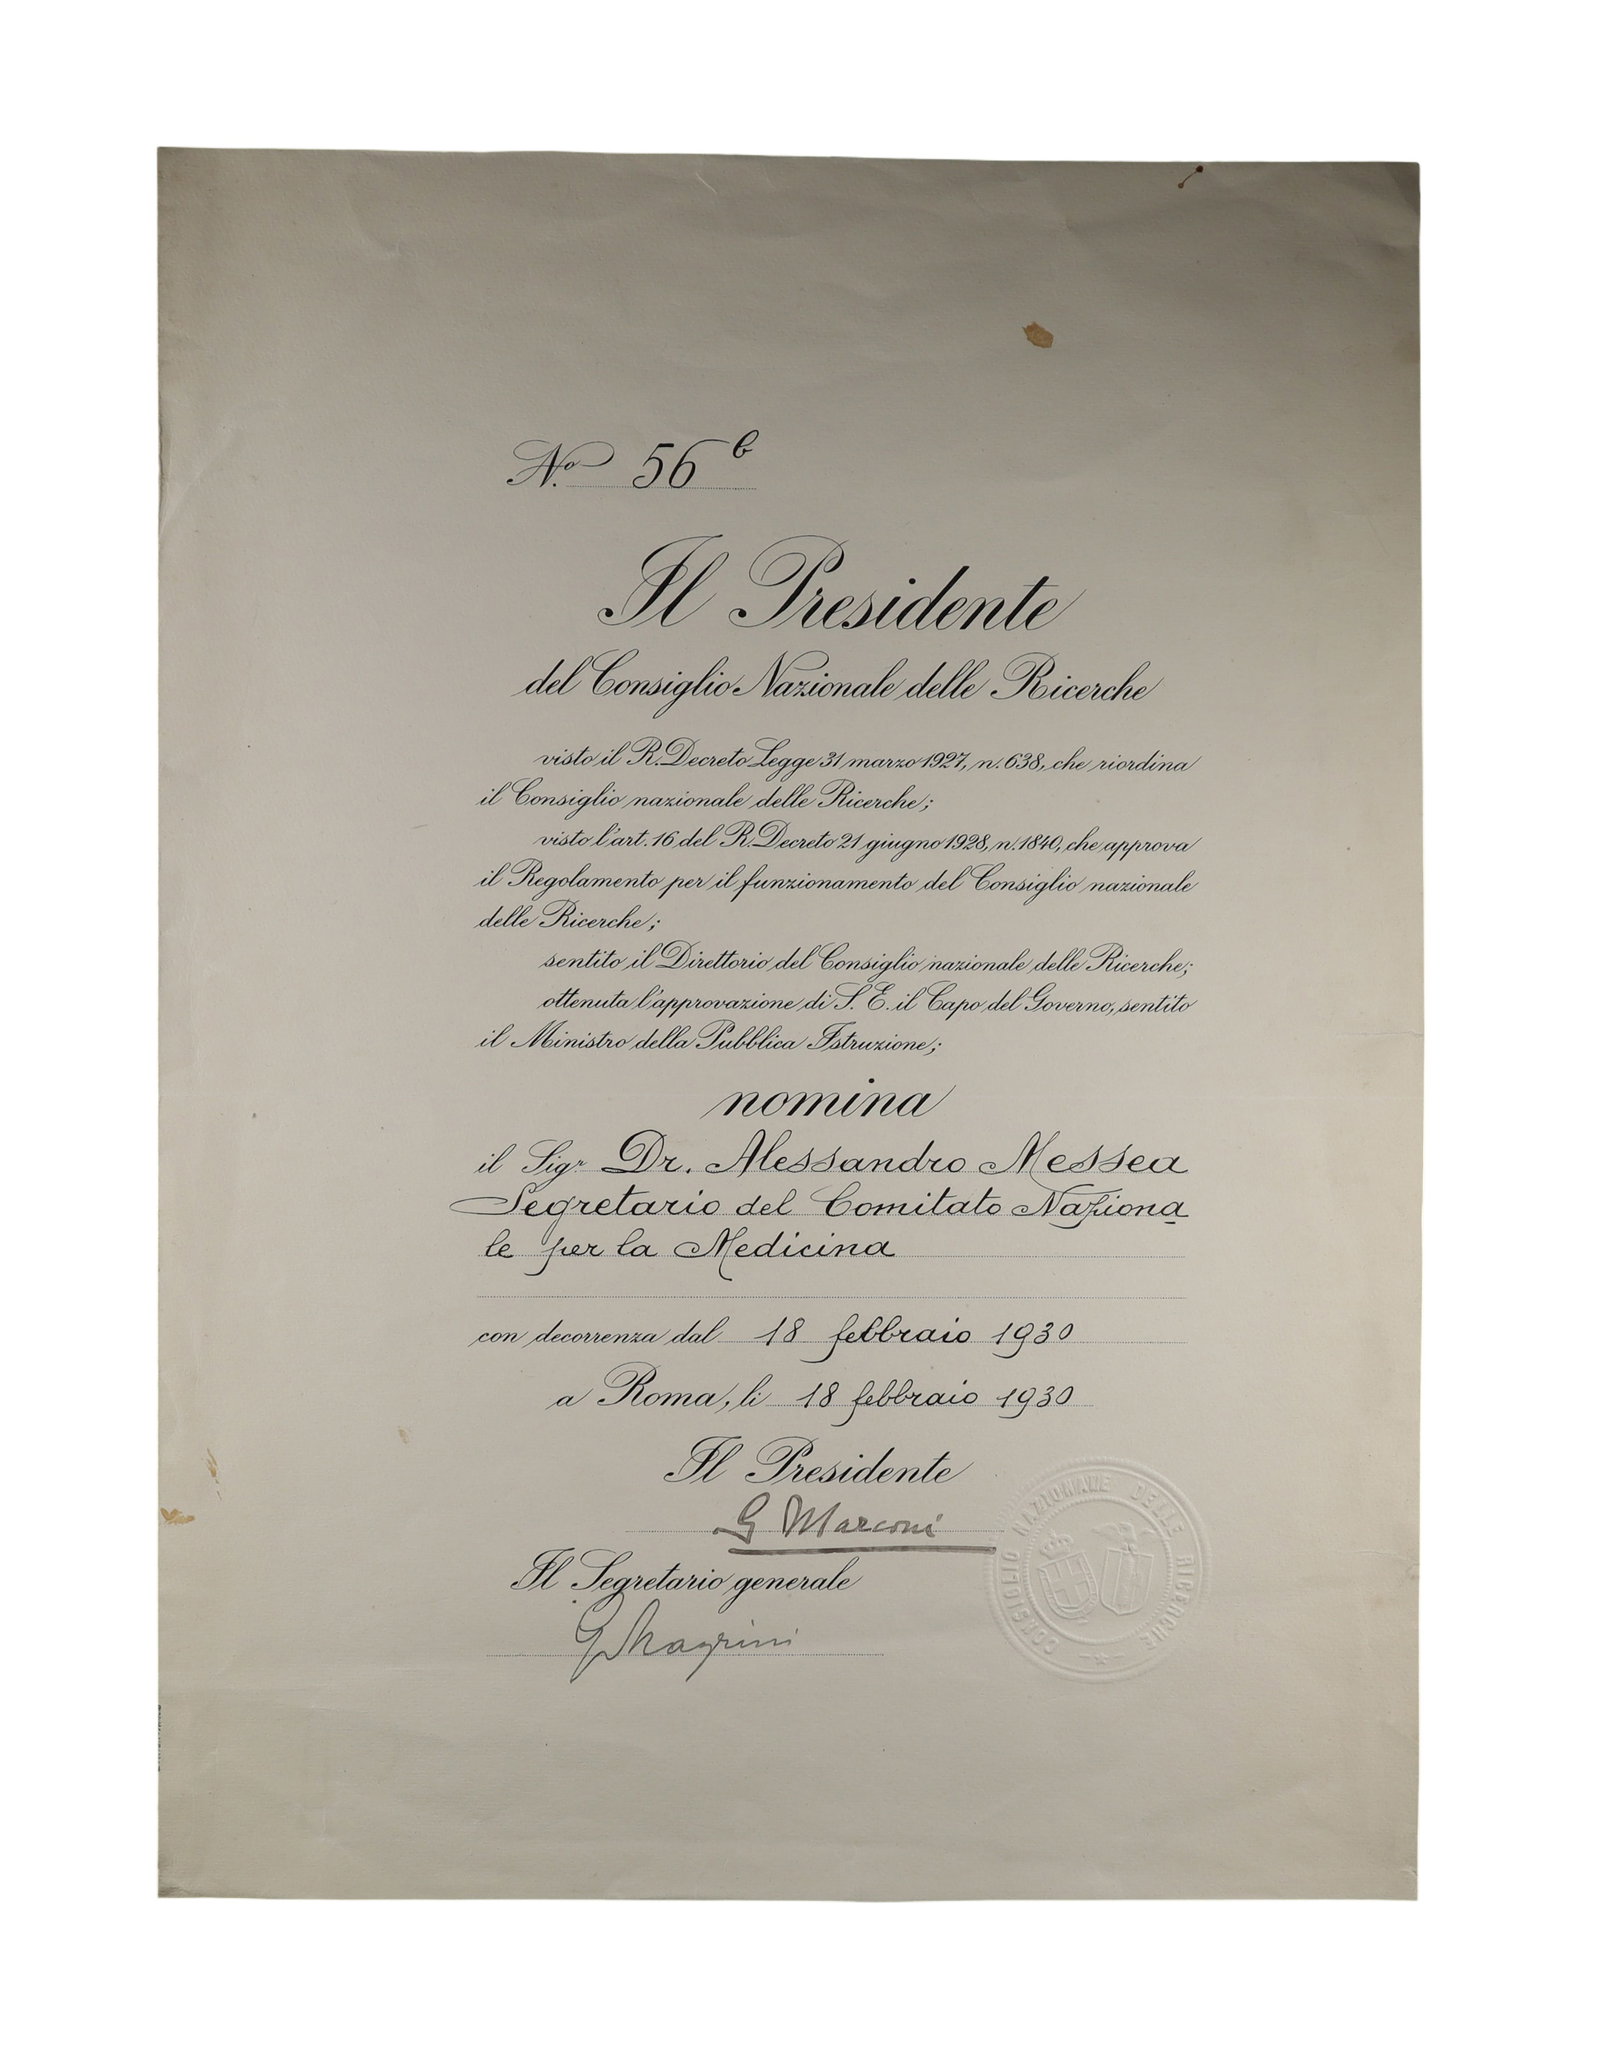 N.o 56 b
Il Presidente
del Consiglio Nazionale delle Ricerche
visto il R. Decreto Legge 31 marzo 1927, n. 638, che riordina
il Consiglio nazionale delle Ricerche;
visto l'art. 16 del R. Decreto 21 giugno 1928, n. 1840, che approva
il Regolamento per il funzionamento del Consiglio nazionale
delle Ricerche;
sentito il Direttorio del Consiglio nazionale delle Ricerche;
ottenuta l'approvazione di S. E. il Capo del Governo, sentito
il Ministro della Pubblica Istruzione;
nomina
il Sigr. Dr. Alessandro Messea
Segretario del Comitato Naziona
le per la Medicina
con decorrenza dal 18 febbraio 1930
a Roma, li 18 febbraio 1930
Il Presidente
G Marconi
Il Segretario generale
G Magrini
CONSIGLIO NAZIONALE DELLE RICERCHE